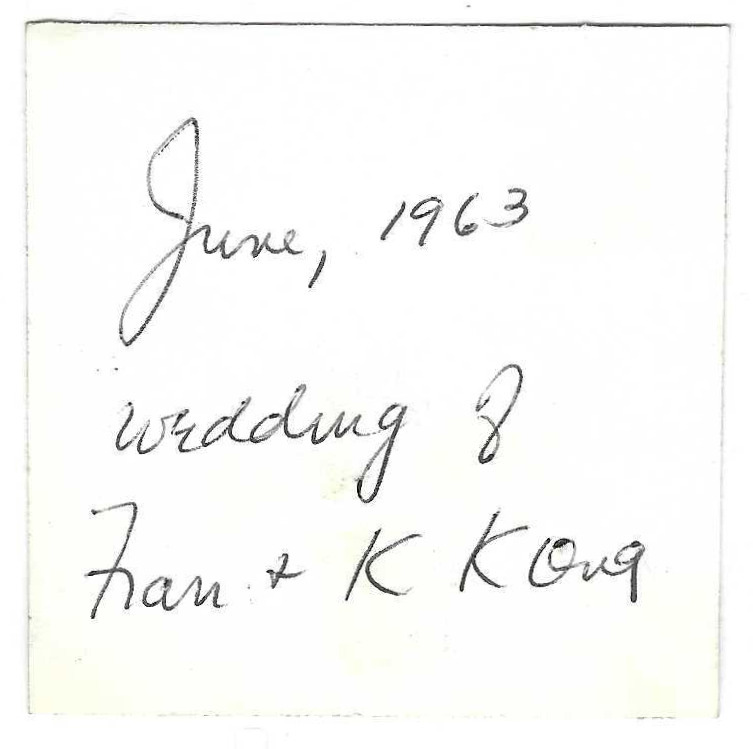 June, 1963
wedding of
Fran + K Kong